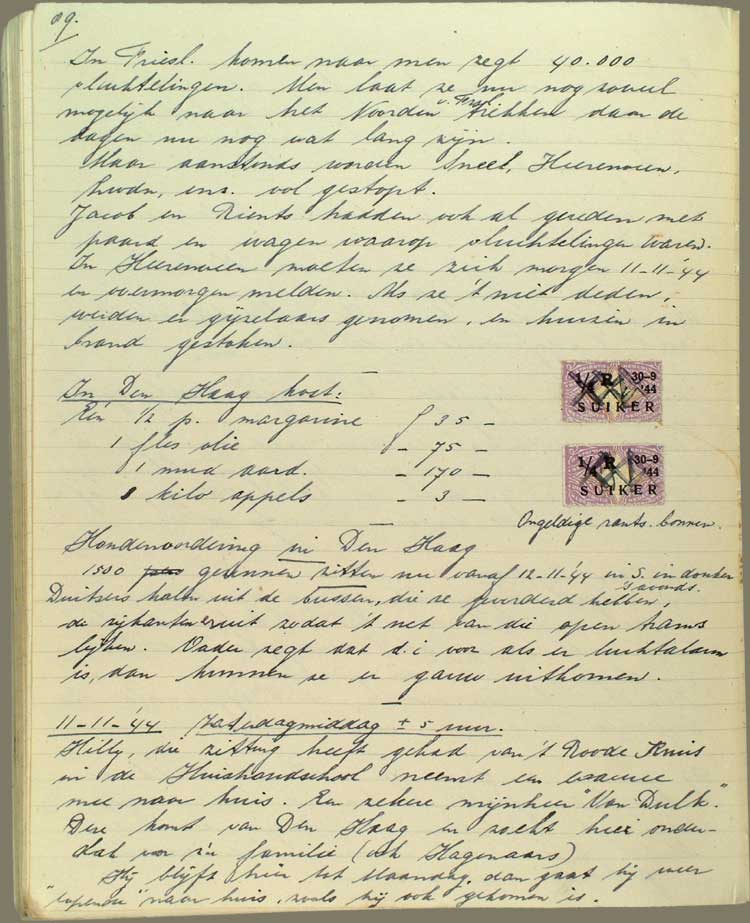 89.
In Friesl. komen naar men zegt 40.000
vluchtelingen. Men laat ze nu nog zoveel
mogelijk naar het Noorden v. Friesl. trekken daar de
dagen nu nog wat lang zijn.
Maar aanstonds worden Sneek, Heerenveen,
Lwdn, enz. vol gestopt.
Jacob en Rients hadden ook al gereden met
paard en wagen waarop vluchtelingen waren.
In Heerenveen moeten ze zich morgen 11-11-'44
en overmorgen melden. Als ze 't niet deden,
werden er gijzelaars genomen, en huizen in
brand gestoken.
In Den Haag kost:
Eén 1/2 p. margarine ƒ 35 —
1 fles olie - 75 —
1 mud aard. - 170 —
1 kilo appels - 3 —
1/4 R 30-9 '44
SUIKER
1/4 R 30-9 '44
SUIKER
Ongeldige rants. bonnen.
Hondenvordering in Den Haag
1500 gezinnen zitten nu vanaf 12-11-'44 in S. in donker
's avonds.
Duitsers halen uit de bussen, die ze gevorderd hebben,
de zijkanten eruit zodat 't net van die open trams
lijken. Vader zegt dat d.i voor als er luchtalarm
is, dan kunnen ze er gauw uitkomen.
11-11-'44 Zaterdagmiddag ± 5 uur.
Hilly, die zitting heeft gehad van 't Roode Kruis
in de Huishoudschool neemt een
mee naar huis. Een zekere mijnheer "Van Dulk".
Deze komt van Den Haag en zocht hier onder-
dak voor z'n familie (ook Hagenaars)
Hij blijft hier tot Maandag, dan gaat hij weer
"lopende" naar huis, zoals hij ook gekomen is.